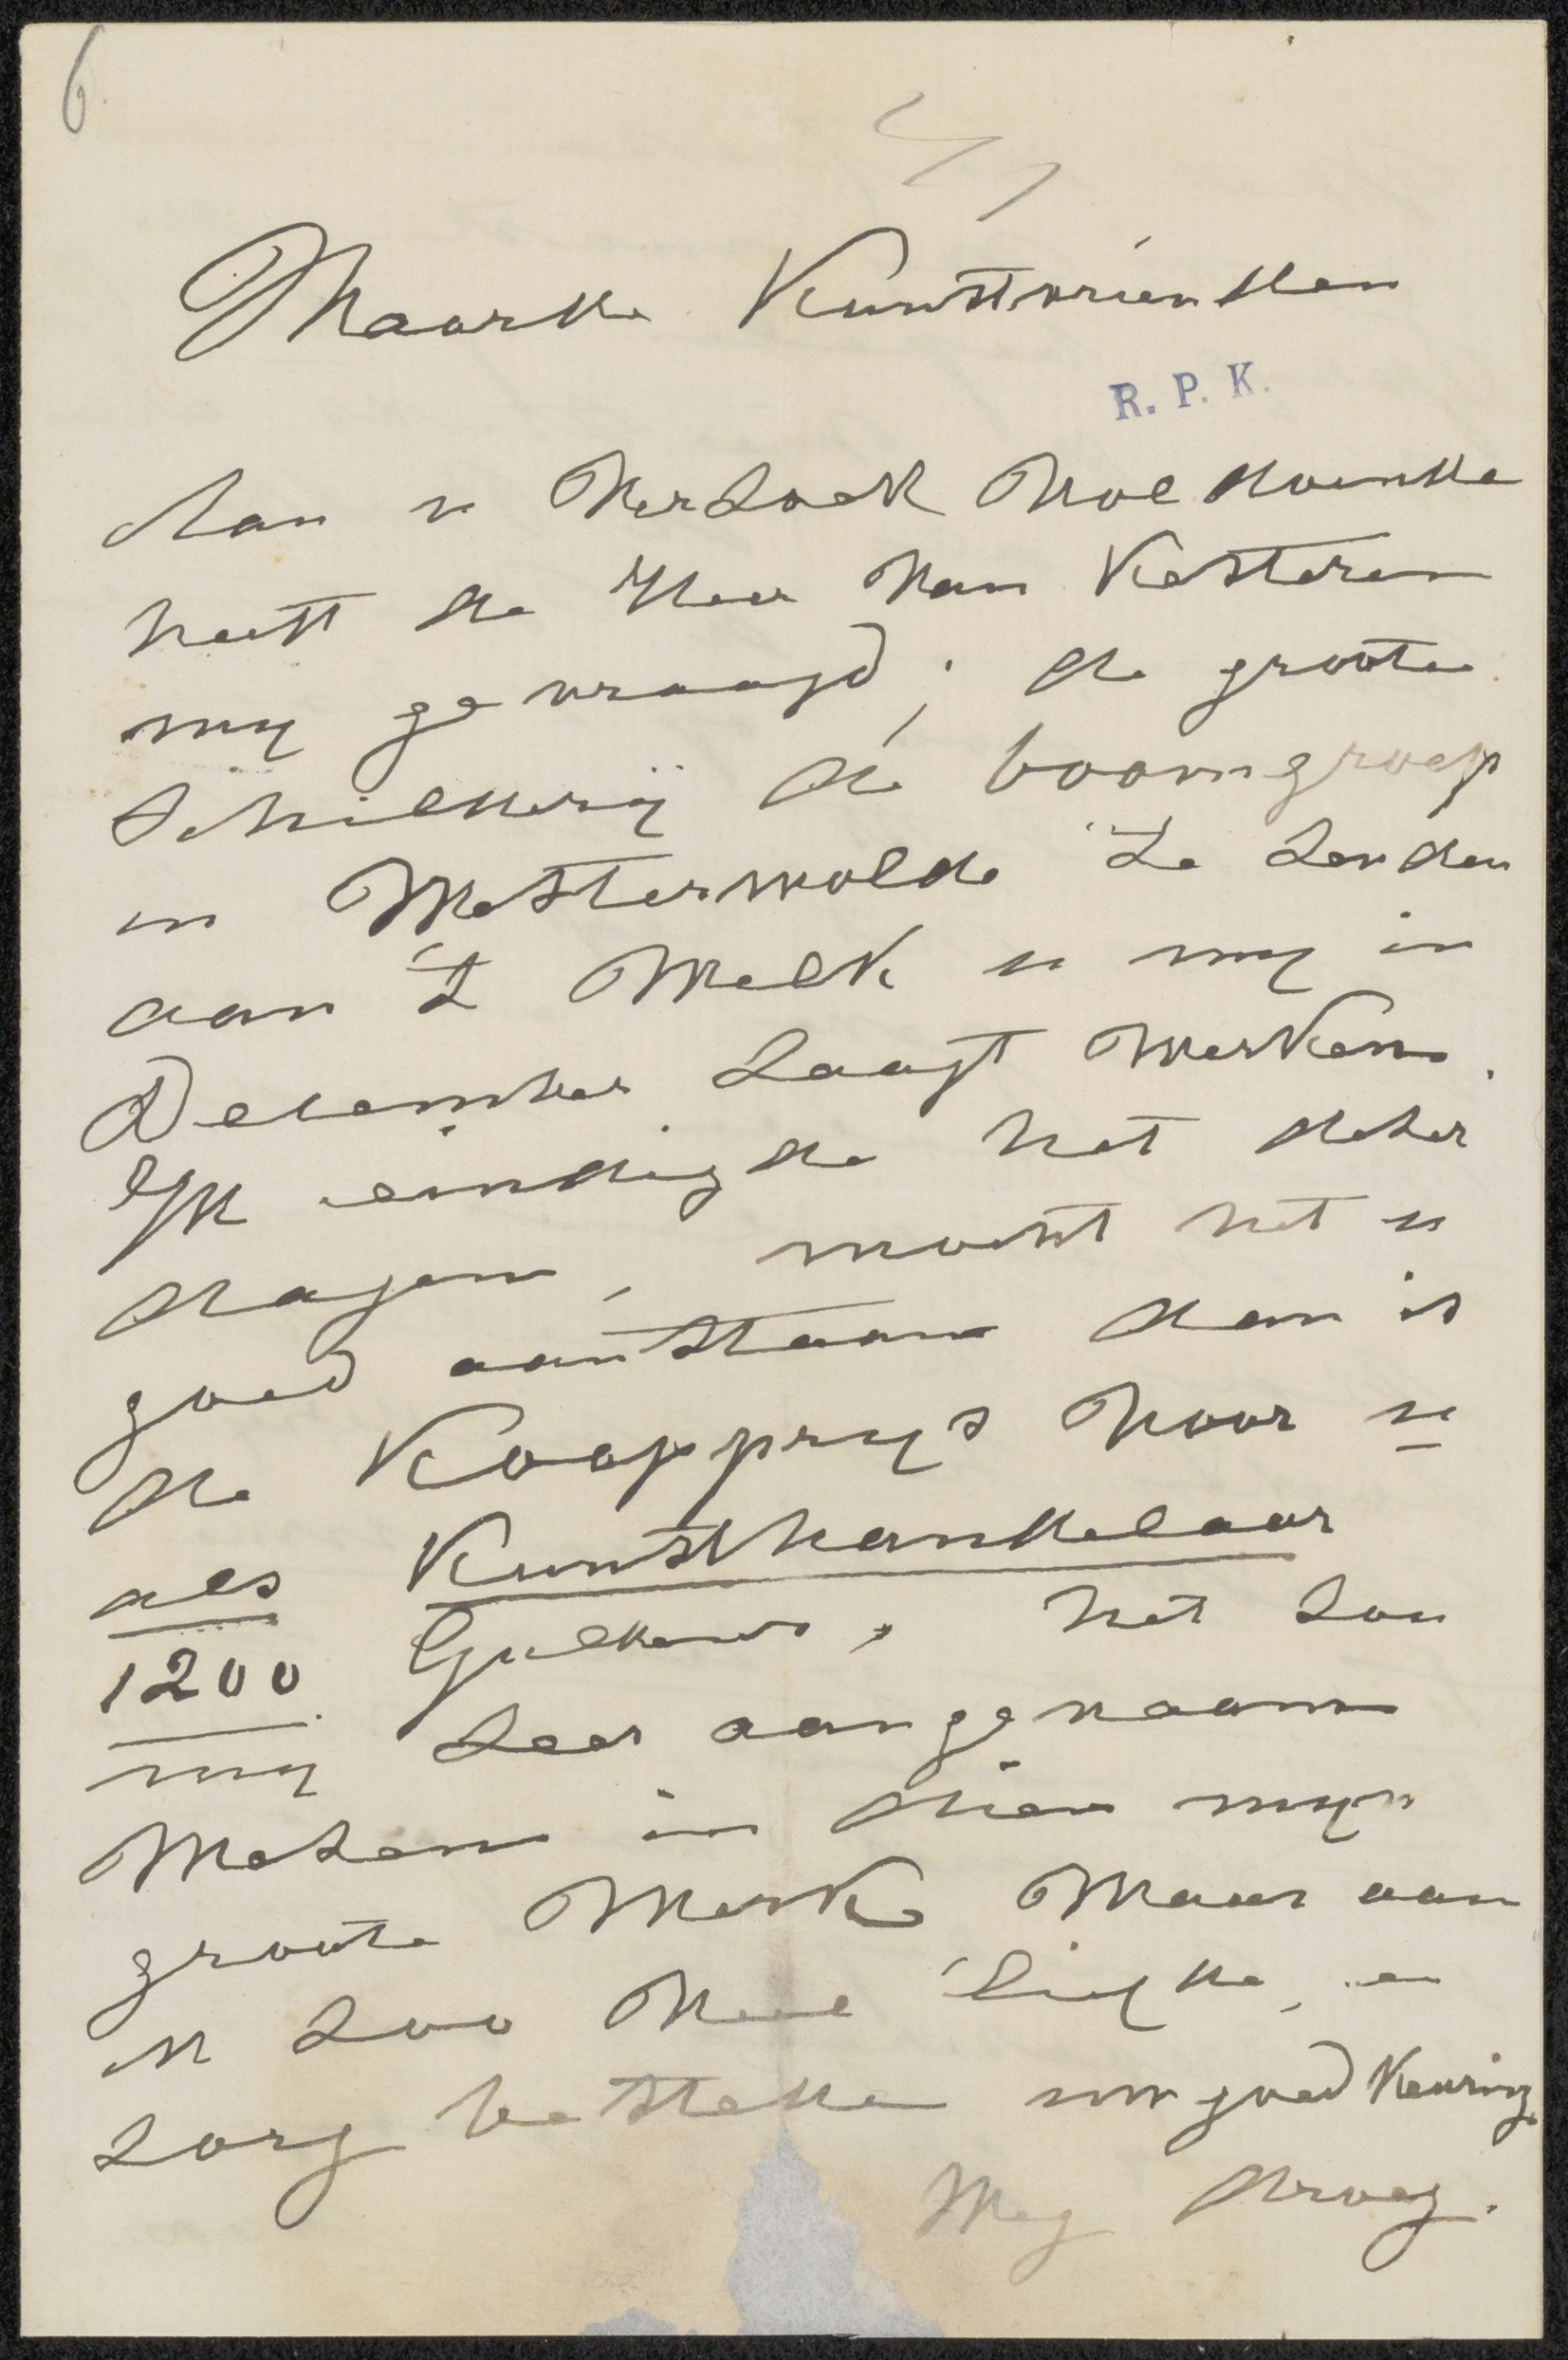 6.
Waarde Kunstvrienden
R. P. K.
Aan u Verzoek Voldoende
heeft de Heer Van Kesteren
my gevraagd; de groote
Schilderÿ de boomgroep
in Westerwolde te Zenden
aan 't Welk u my in
December Zaagt Werken.
Ik eindigde het dezer
dagen, mocht het u
goed aanstaan dan is
de Koopprys Voor u
als Kunsthandelaar
1200 Gulden, het Zou
my Zeer aangenaam
Wezen in dien myn
groote Werk Waar aan
ik Zoo Veel liefde, en
Zorg bestede uw goed Keuring
Weg droeg.